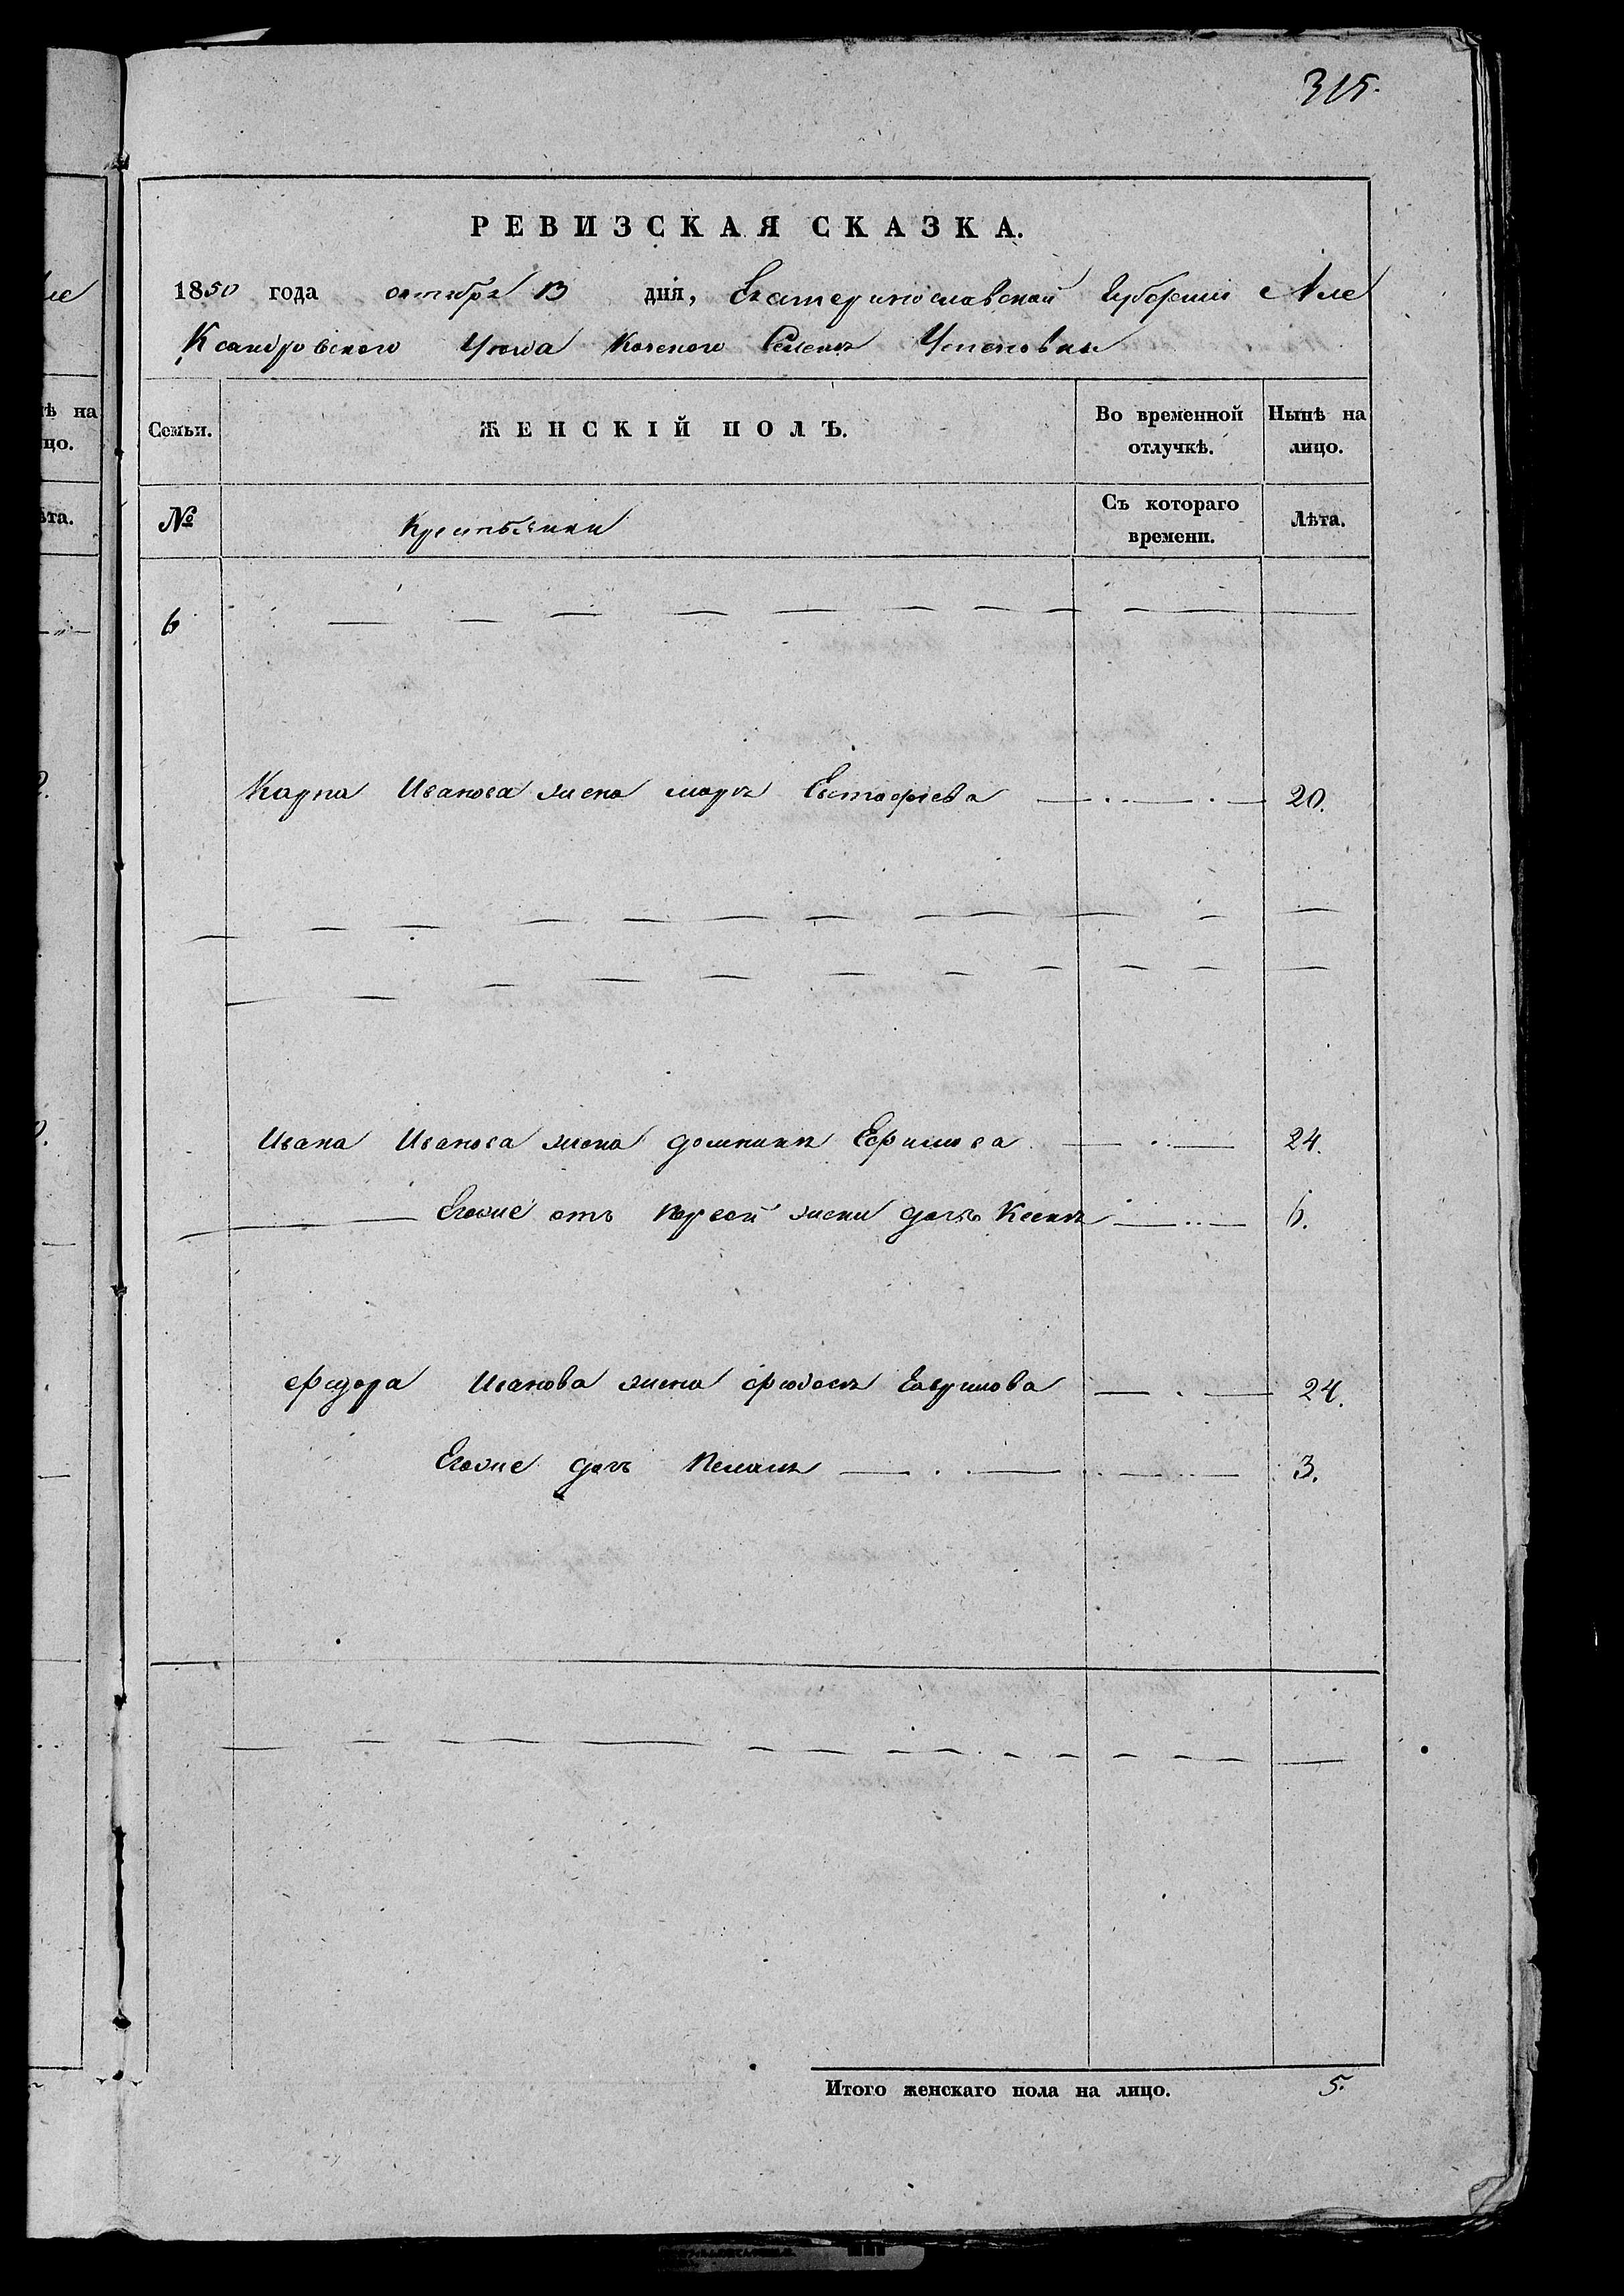 315.
РЕВИЗСКАЯ СКАЗКА.
1850 года октября 13 дня, Екатеринославской Губернии Але
Ксандровского Уезда Селения
Семьи. ЖЕНСКІЙ ПОЛЪ. Во временной отлучкѣ. Нынѣ на лицо.
№ Крестьянки Съ котораго времени. Лѣта.
6
Карпа Иванова жена марья Евстафiева 20.
Ивана Иванова жена домникия Ефимова 24.
Егоже отъ первой жены дочь Ксения 6.
Фидора Иванова жена Фиодосия Гаврилова 24.
Егоже дочь Пелагия 3.
Итого женскаго пола на лицо. 5.